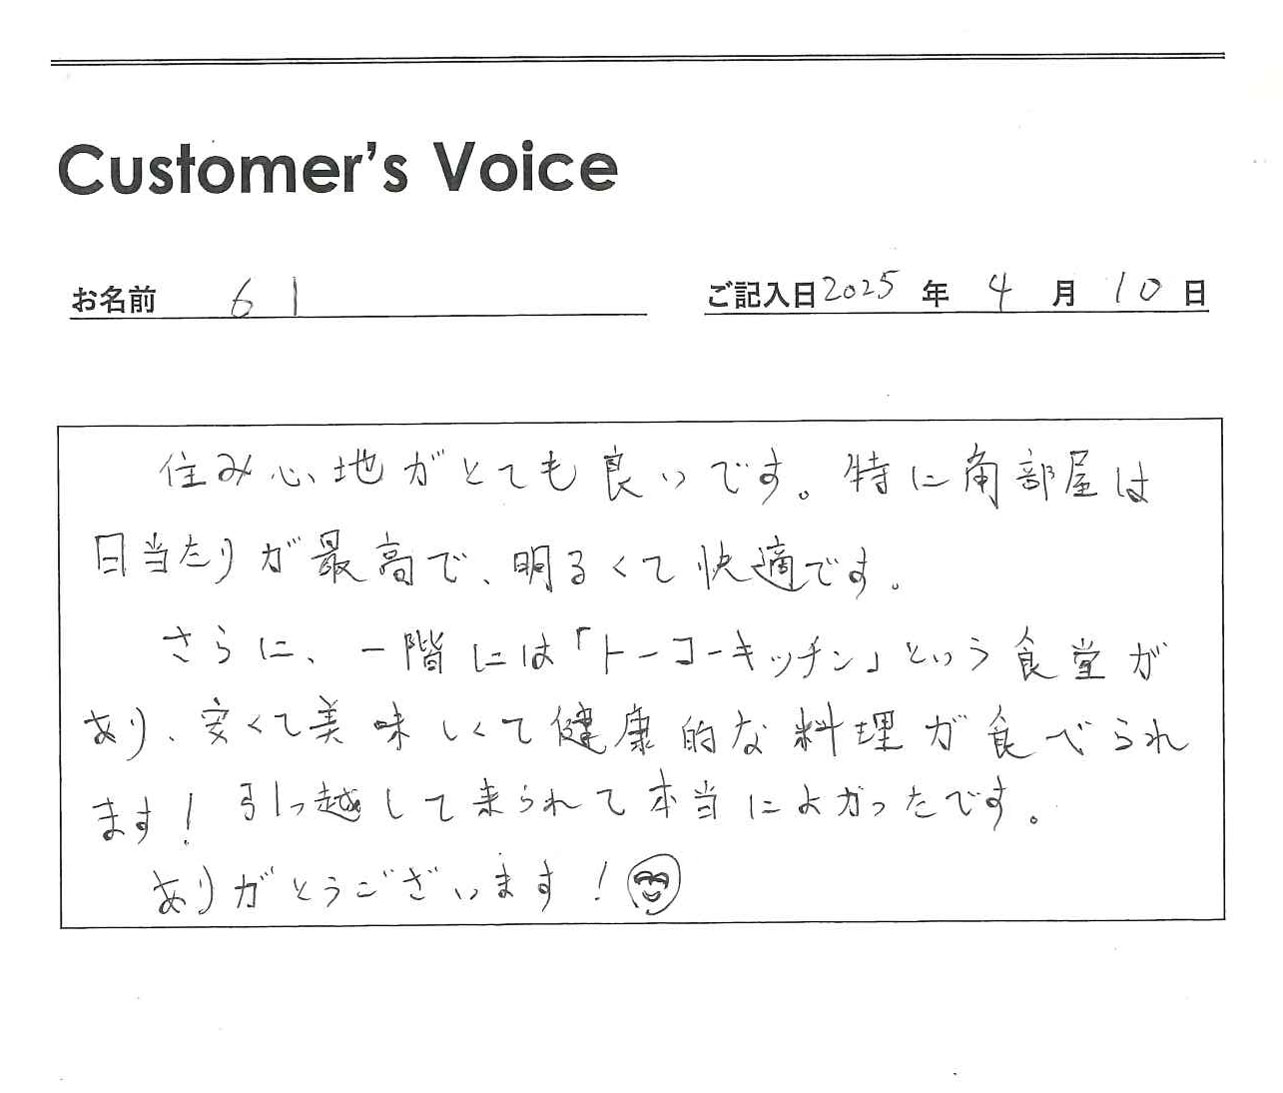 Customer's Voice
お名前 61
ご記入日2025年 4月 10日
住み心地がとても良いです。特に角部屋は
日当たりが最高で、明るくて快適です。
さらに、一階には「トーコーキッチン」という食堂が
あり、安くて美味しくて健康的な料理が食べられ
ます！引っ越して来られて本当によかったです。
ありがとうございます！